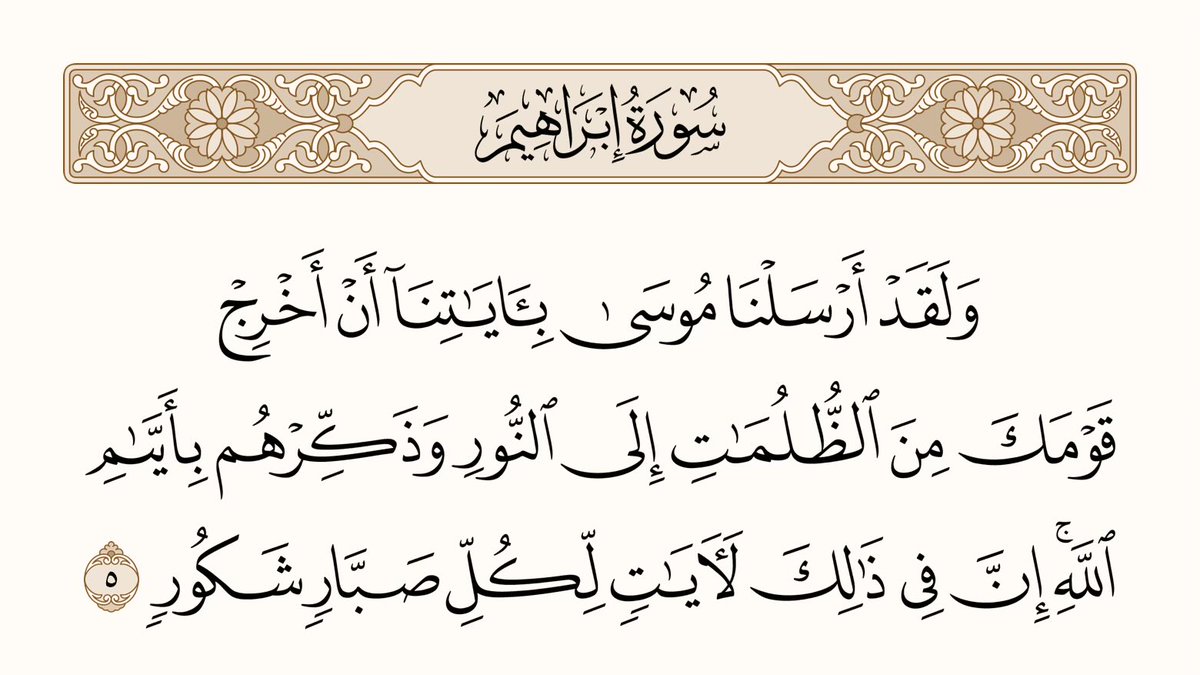 سُورَةُ إِبْرَاهِيمَ
وَلَقَدْ أَرْسَلْنَا مُوسَىٰ بِـَٔايَـٰتِنَآ أَنْ أَخْرِجْ
قَوْمَكَ مِنَ ٱلظُّلُمَـٰتِ إِلَى ٱلنُّورِ وَذَكِّرْهُم بِأَيَّىٰمِ
ٱللَّهِ ۚ إِنَّ فِى ذَٰلِكَ لَـَٔايَـٰتٍ لِّكُلِّ صَبَّارٍ شَكُورٍ ٥